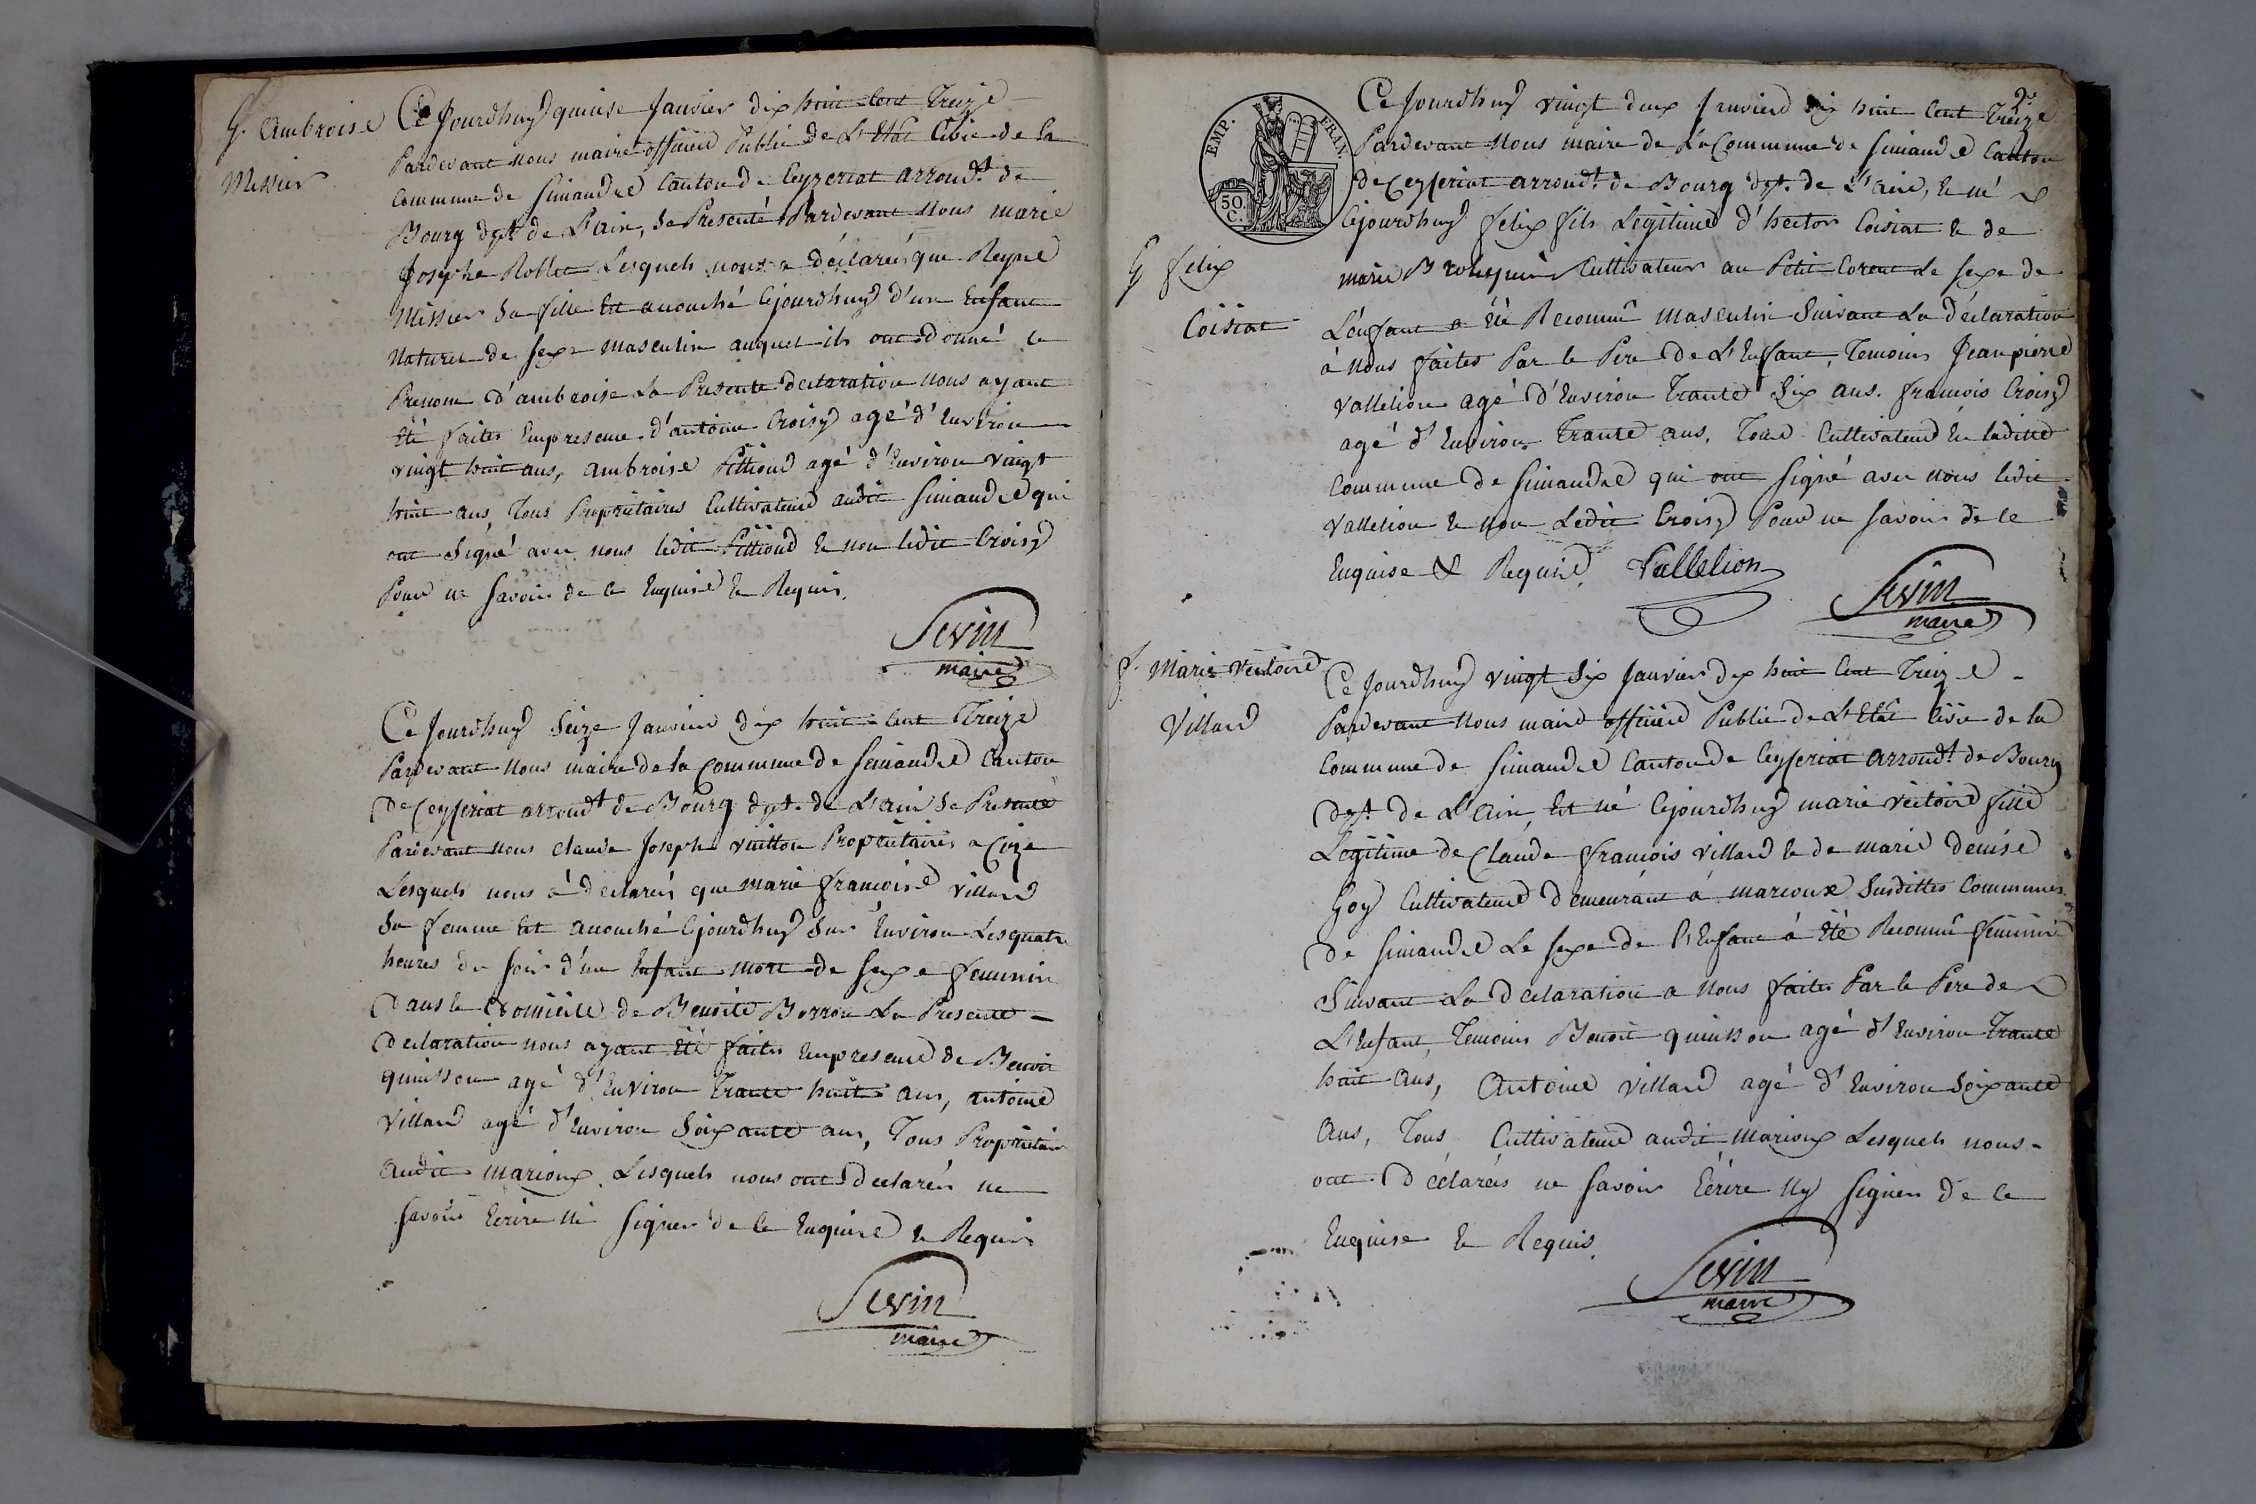 G. Ambroise
Messier
Ce Jourdhuy quinse Janvier dix huit Cent Treize
Pardevant nous maire officier Public de L'Etat Civie de la
Commune de Simandre Canton de Ceyzeriat arrondt de
Bourg dpt de L'ain, Se Presenté Pardevant Nous marie
Josephe Rollet Lesquels nous a déclarés que Reyne
Messier Sa fille Est acouché Cejourdhuy d'un Enfant
Naturel de Sexe masculin auquel ils ont donné le
Prenom d'ambroise La Presente declaration nous ayant
Eté faites Empresence d'antoine Croisy agé d'Environ
vingt huit ans, ambroise Pittioud agé d'Environ vingt
huit ans, Tous Proprietaires Cultivateurs audit Simandre qui
ont Signé avec nous ledit Pittioud & non ledit Croisy
Pour ne Savoir de ce Enquise & Requis.
Sevin
maire
Ce Jourdhuy Seize Janvier dix huit Cent Treize
Pardevant Nous maire de la Commune de Simandre Canton
de Ceyseriat arrondt de Bourg dpt. de L'ain Se Presenté
Pardevant Nous Claude Joseph vuitton Proprietaires a Cize
Lesquels nous à declarés que marie francoise villard
Sa femme Est acouché Cejourdhuy Sur Environ Les quatre
heures du Soir d'un Enfant mort de Sexe feminin
Dans le Domicile de Benoite Borron La Presente
Declaration nous ayant Eté faites Empresence de Benoit
quinsson agé d'Environ Trante huit ans, antoine
Villard agé d'Environ Soixante ans, Tous Proprietair
Audit marioux Lesquels nous ont declarés ne
Savoir Ecrire Ni Signer de Ce Enquise & Requis
Sevin
maire
2e
EMP. FRAN.
50. C.
G felix
Coisiat
Ce Jourdhuy vingt deux Janvier dix huit Cent Treize
Pardevant Nous maire de La Commune de Simandre Canton
de Ceyseriat arrondt. de Bourg dpt. de L'ain, Est né
Cejourdhuy felix fils Legitime d'hector Coisiat & de
marie Cultivateur au Petit Corent Le Sexe de
L'enfant a Eté Reconnû Masculin Suivant La déclaration
à Nous faites Par le Pere de L'Enfant, Temoins Jean pierre
vallelion agé d'Environ Trante Six ans. francois Croisy
agé d'Environ Trante ans, Tous Cultivateurs En laditte
Commune de Simandre qui ont Signé avec nous ledit
vallelion & non Ledit Croisy Pour ne Savoir de Ce
Enquise & Requise. Vallelion
Sevin
maire
f. Marie Victoire
Villard
Ce Jourdhuy vingt Six Janvier dix huit Cent Treize
Pardevant Nous maire officier Public de L'Etat Civie de la
Commune de Simandre Canton de Ceyseriat arrondt de Bourg
dpt. de L'ain, Est né Cejourdhuy marie Victoire fille
Legitime de Claude francois Villard & de marie denise
Goy Cultivateurs Demeurant à marioux Susdittes Communes
de Simandre Le Sexe de l'Enfant à Eté Reconnû feminin
Suivant La declaration a Nous faites Par le Pere de
L'Enfant, Temoins Benoit quinsson agé d'Environ Trante
huit ans, Antoine Villard agé d'Environ Soixante
Ans, Tous Cultivateurs audit Marioux Lesquels nous
ont Déclarés ne Savoir Ecrire Ny Signer de Ce
Enquise & Requis.
Sevin
maire